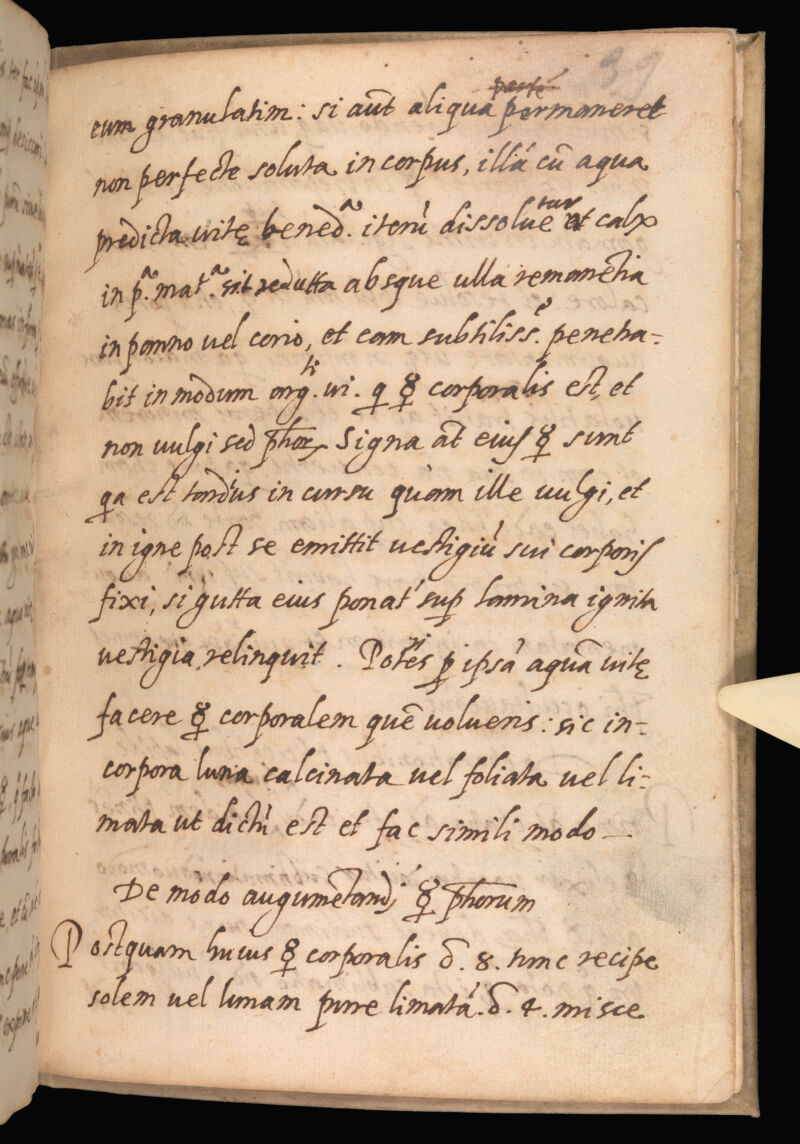 39
eum granulatim: si aūt aliqua permaneret
non perfecte soluta in corpus, illā cū aqua
predicta uitę bened.ᵃ iterū dissoluetur et calx
in p.ᵃ mat.ᵃ sit redutta absque ulla remanētia
in panno uel corio, et eam subtiliss.ᵉ penetra-
bit in modum arg.ᵗⁱ ui. q ☿ corporalis est, et
non uulgi sed phoꝝ. Signa aāt eius ☿ sunt
qa est tardius in cursu quam ille uulgi, et
in igne post se emittit uestigiū sui corporis
fixi, si gutta eius ponat' sup lamina ignita
uestigia relinquit. Poteris p ipsā aquā uitę
facere ☿ corporalem quē uolueris: sic in-
corpora luna calcinata uel foliata uel li-
mata ut dictū est et fac simili modo —
De modo augumētandi ☿ phorum
Postquam huius ☿ corporalis ʒ. 8. tunc recipe
solem uel lunam pure limatā. ʒ. 4. misce